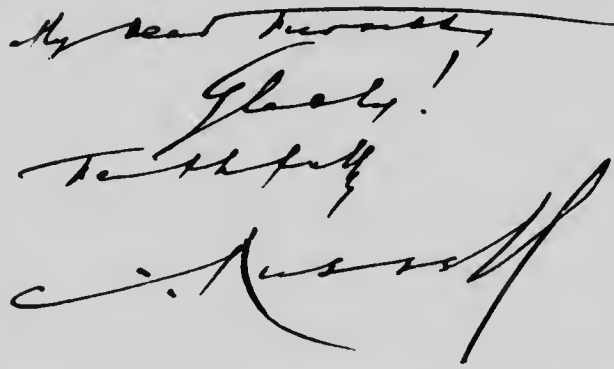 My dear
Gladly!
Faithfully
C. Russell